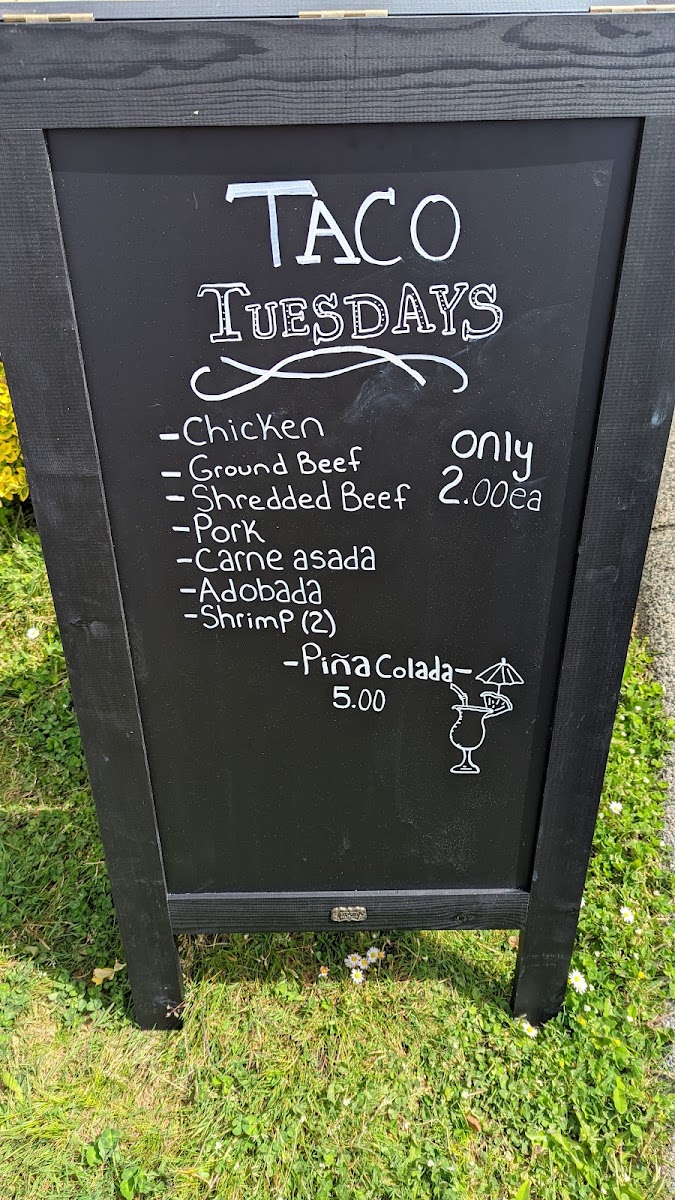 TACO
TUESDAYS
-Chicken
- Ground Beef
- Shredded Beef
-Pork
-Carne asada
-Adobada
-Shrimp (2)
only
2.00ea
-Piña Colada-
5.00